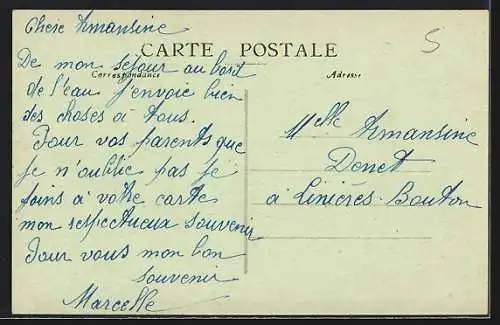 Chère Armansine
De mon séjour au bord
de l'eau j'envoie bien
des choses à tous.
Pour vos parents que
je n'oublie pas je
joins à votre carte
mon respectueux souvenir
Pour vous mon bon
souvenir
Marcelle
CARTE POSTALE
Correspondance
Adresse
5
Melle Armansine
Denet
à Linières-Bouton